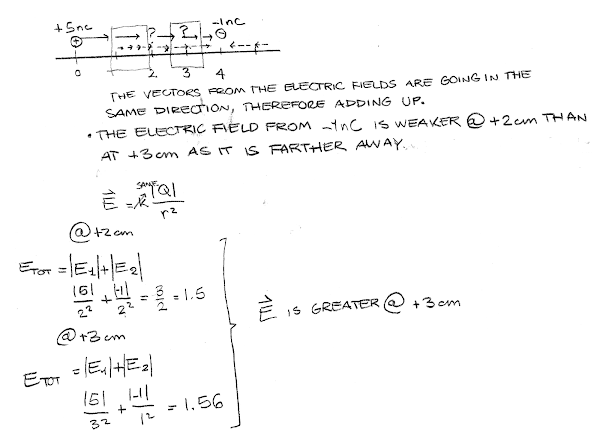 +5nc -1nC
⊕ ? ? ⊖
0 1 2 3 4
THE VECTORS FROM THE ELECTRIC FIELDS ARE GOING IN THE
SAME DIRECTION, THEREFORE ADDING UP.
• THE ELECTRIC FIELD FROM -1nC IS WEAKER @ +2cm THAN
AT +3cm AS IT IS FARTHER AWAY.
SAME
E⃗ = k |Q| / r²
@ +2cm
E_TOT = |E₁|+|E₂|
|5|/2² + |-1|/2² = 3/2 = 1.5
@ +3cm
E_TOT = |E₁|+|E₂|
|5|/3² + |-1|/1² = 1.56
E⃗ IS GREATER @ +3cm